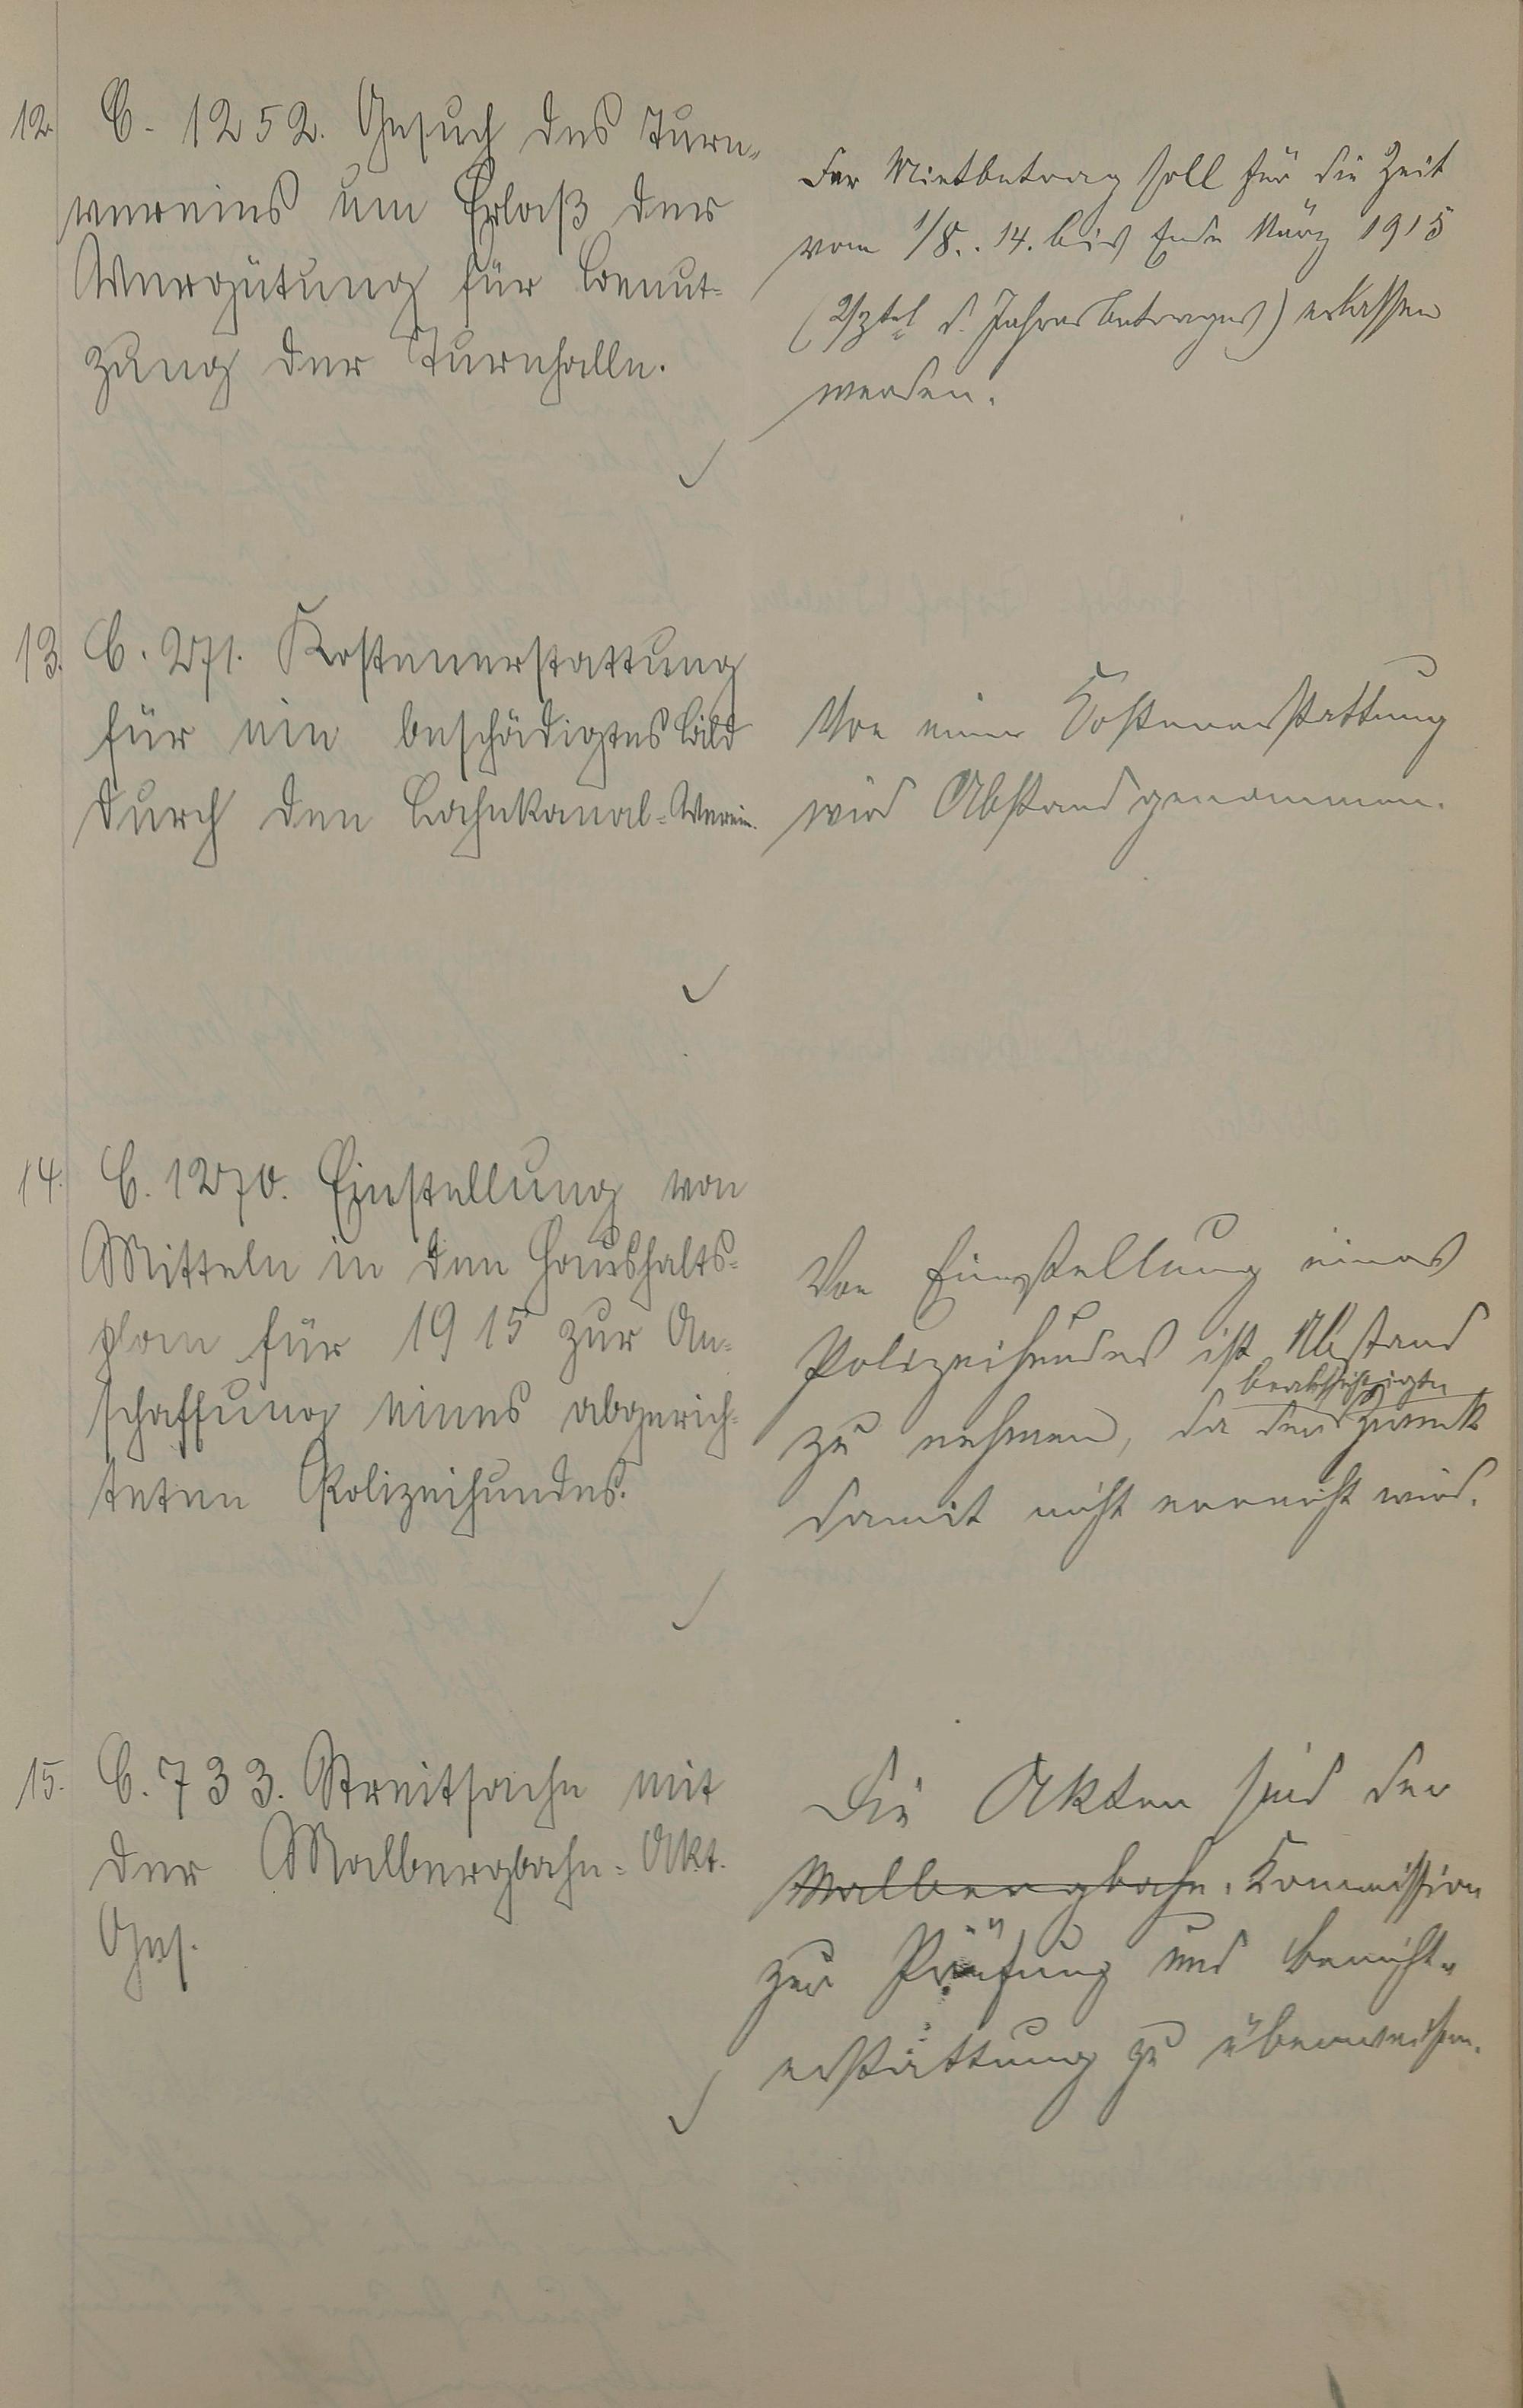 12. C. 1252. Gesuch des Turn-
vereins um Erlaß der
Vergütung für Benut-
zung der Turnhalle.
Der Mietbetrag soll für die Zeit
vom 1/8. 14. bis Ende März 1915
(2/3tel d. Jahresbetrages) erlassen
werden.
13. C. 271. Kostenerstattung
für ein beschädigtes Bild
durch den Lahnkanal-Verein.
Von einer Kostenerstattung
wird Abstand genommen.
14. C. 1270. Einstellung von
Mitteln in den Haushalts-
plan für 1915 zur An-
schaffung eines abgerich-
teten Polizeihundes.
Von Einstellung eines
Polizeihundes ist Abstand
zu nehmen, da der beabsichtigte Zweck
damit nicht erreicht wird.
15. C. 733. Streitsache mit
der Malbergbahn-Akt.
Ges.
Die Akten sind der
Malbergbahn-Kommission
zur Prüfung und Bericht-
erstattung zu überweisen.